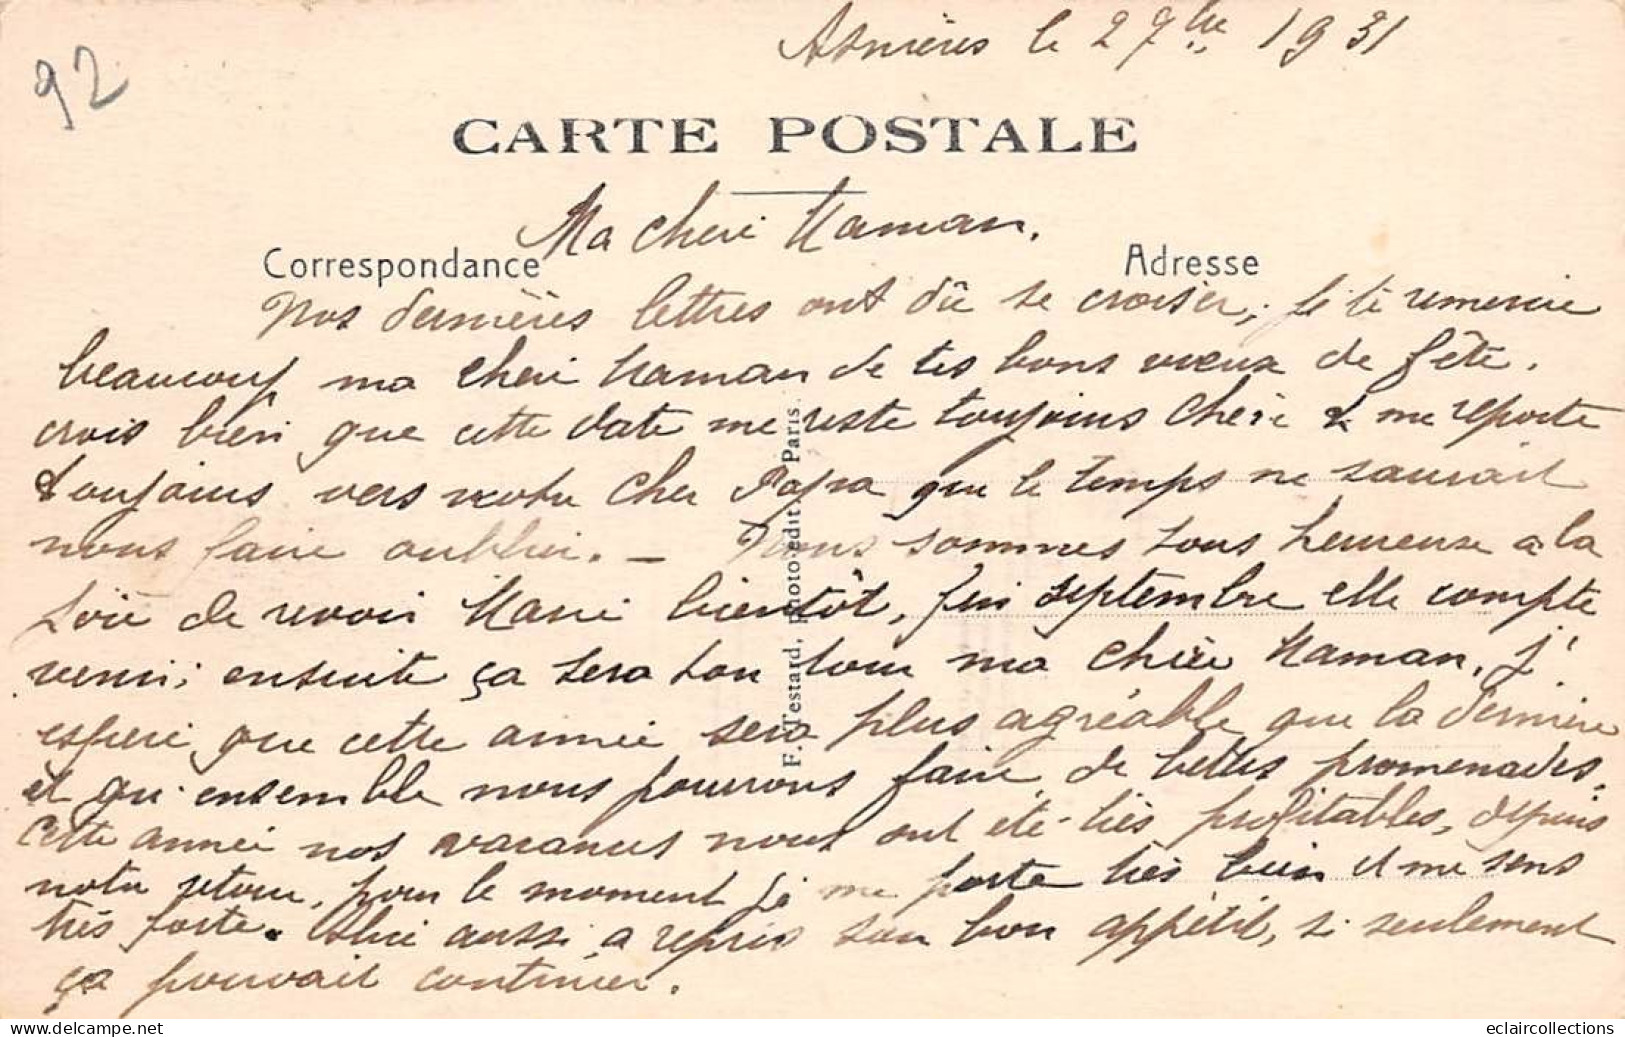 Asnières le 2 7bre 1931
92
CARTE POSTALE
Ma cheri Maman.
Correspondance
Adresse
Nos dernières lettres ont dû se croiser, je te remercie
beaucoup ma cheri Maman de tes bons vœux de fête.
crois bien que cette date me reste toujours chère & me reporte
toujours vers notre cher Papa que le temps ne saurait
nous faire oublier. — Nous sommes tous heureux a la
joie de revoir Marie bientôt, fin septembre elle compte
venir; ensuite ça sera ton tour ma chère Maman. J'
espère que cette année sera plus agréable que la dernière
et qu'ensemble nous pourrons faire de belles promenades.
Cette année nos vacances nous ont été très profitables, depuis
notre retour, pour le moment je me porte très bien et me sens
très forte. Alice aussi a repris son bon appétit, si seulement
ça pouvait continuer.
F. Testard, photo-edit. Paris.
www.delcampe.net
eclaircollections